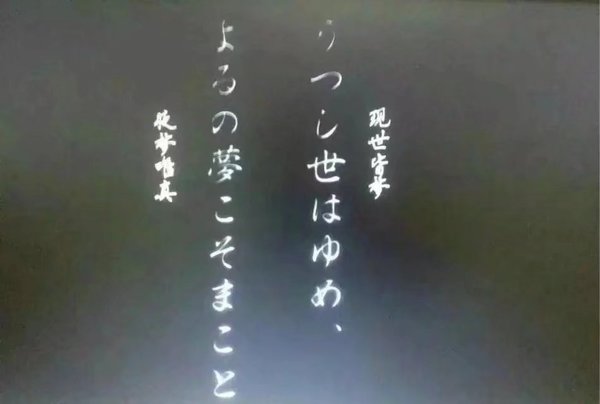 現世皆梦
うつし世はゆめ、
よるの夢こそまこと
夜梦唯真